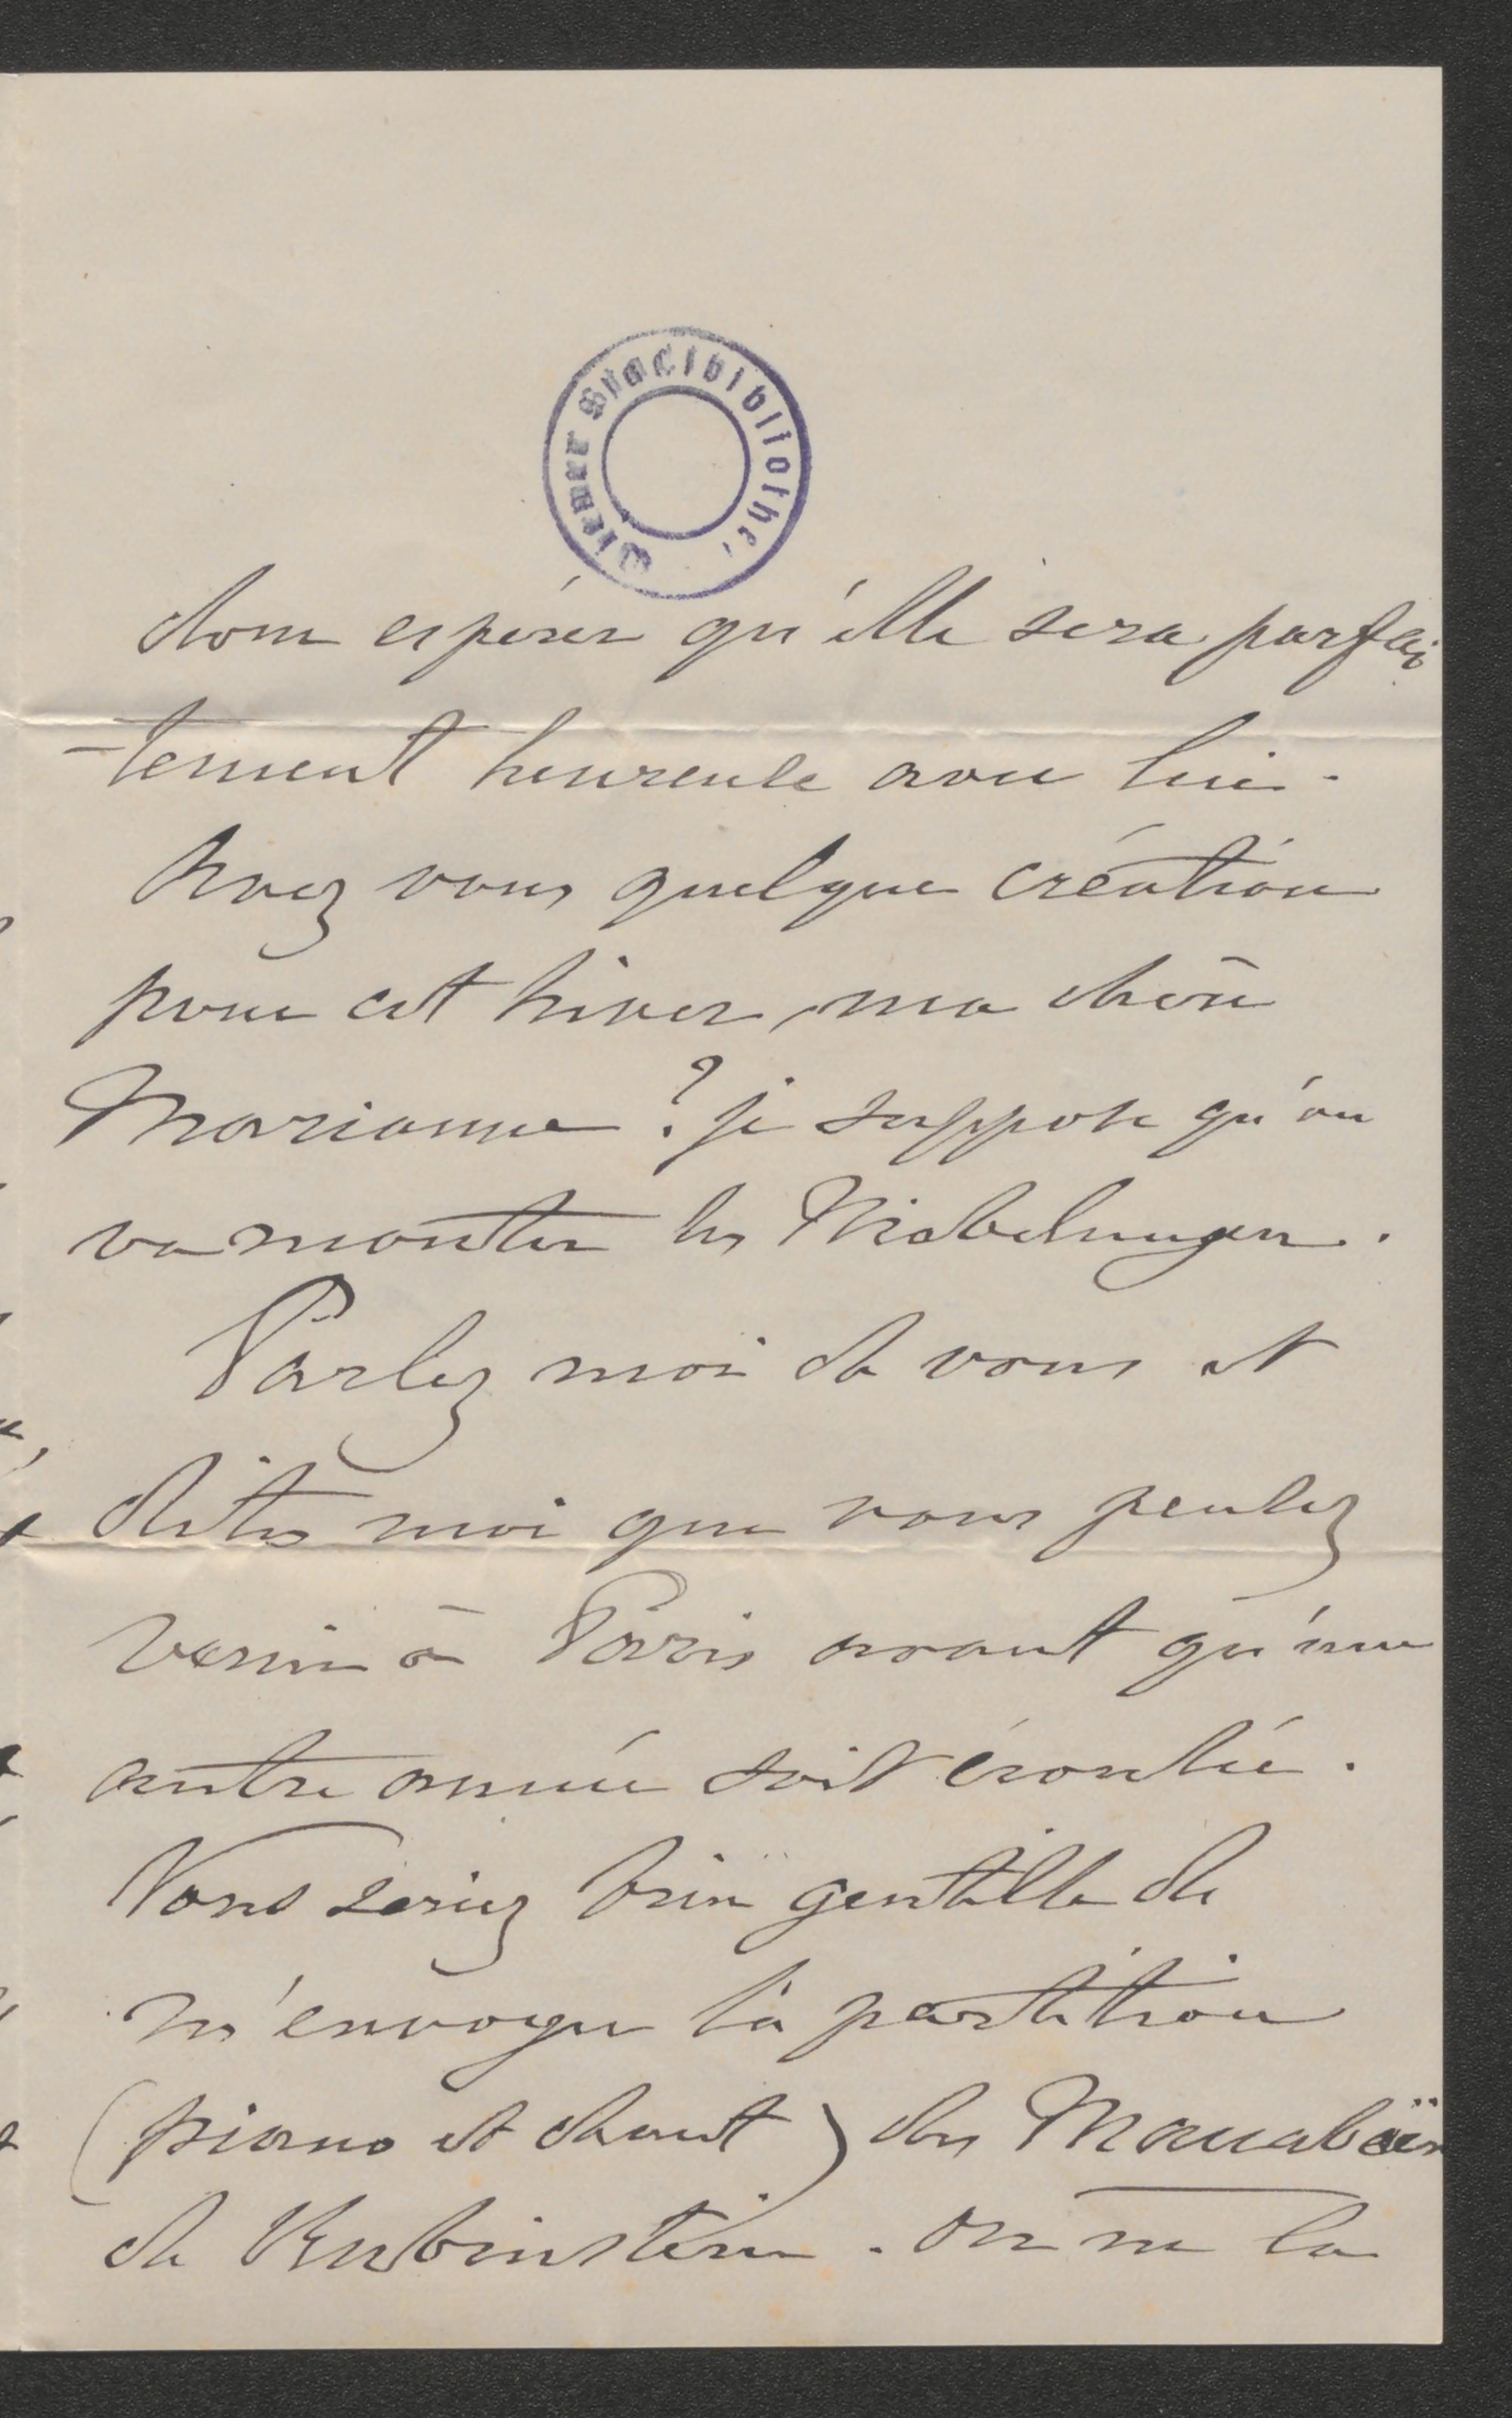 Wiener Stadtbibliothek
donc espérer qu'elle sera parfai
-tement heureuse avec lui.
Avez vous quelque création
pour cet hiver, ma chère
Marianne ? je suppose qu'on
va monter les Niebelungen.
Parlez moi de vous et
dites moi que vous pensez
venir à Paris avant qu'une
autre année soit écoulée.
Vous seriez bien gentille de
m'envoyer la partition
(piano et chant) des Maccabéïs
de Rubinstein. On me la